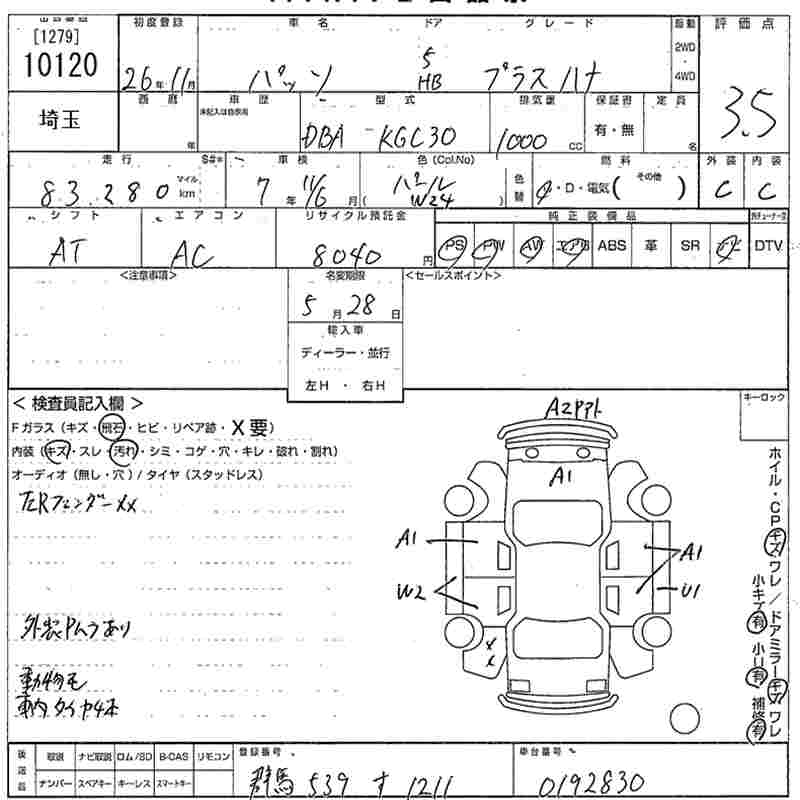 [1279]
10120
初度登録 車名 ドア グレード 駆動 評価点
26年11月 パッソ 5 HB プラスハナ 2WD・4WD 3.5
埼玉 西暦 年 車歴 型式 排気量 保証書 定員
未記入は自家用 DBA-KGC30 1000cc 有・無 名
走行 S#* 車検 色(Col.No) 燃料 外装 内装
83,280 マイル km 7年11/6月 パール W24 色替 ・D・電気( その他 ) C C
シフト エアコン リサイクル預託金 純正装備品
AT AC 8040円 PS PW AW エアB ABS 革 SR DTV
<注意事項> 名変期限 <セールスポイント>
5月28日
輸入車
ディーラー・並行
左H・右H
キーロック
< 検査員記入欄 >
Fガラス (キズ・飛石・ヒビ・リペア跡・X要)
内装 (キズ・スレ・汚れ・シミ・コゲ・穴・キレ・破れ・割れ)
オーディオ (無し・穴) / タイヤ (スタッドレス)
左Rフェンダーxx
外装Pムラあり
動物毛
車内タイヤ4本
A1
A1
A1
W2
U1
ホイル・CPキズワレ / ドアミラーキズワレ
小キズ有 小U有 補修有
後送品 取説 ナビ取説 ロム/SD B-CAS リモコン 登録番号 車台番号
ナンバー スペアキー キーレス スマートキー 群馬 539 す 1211 0192830